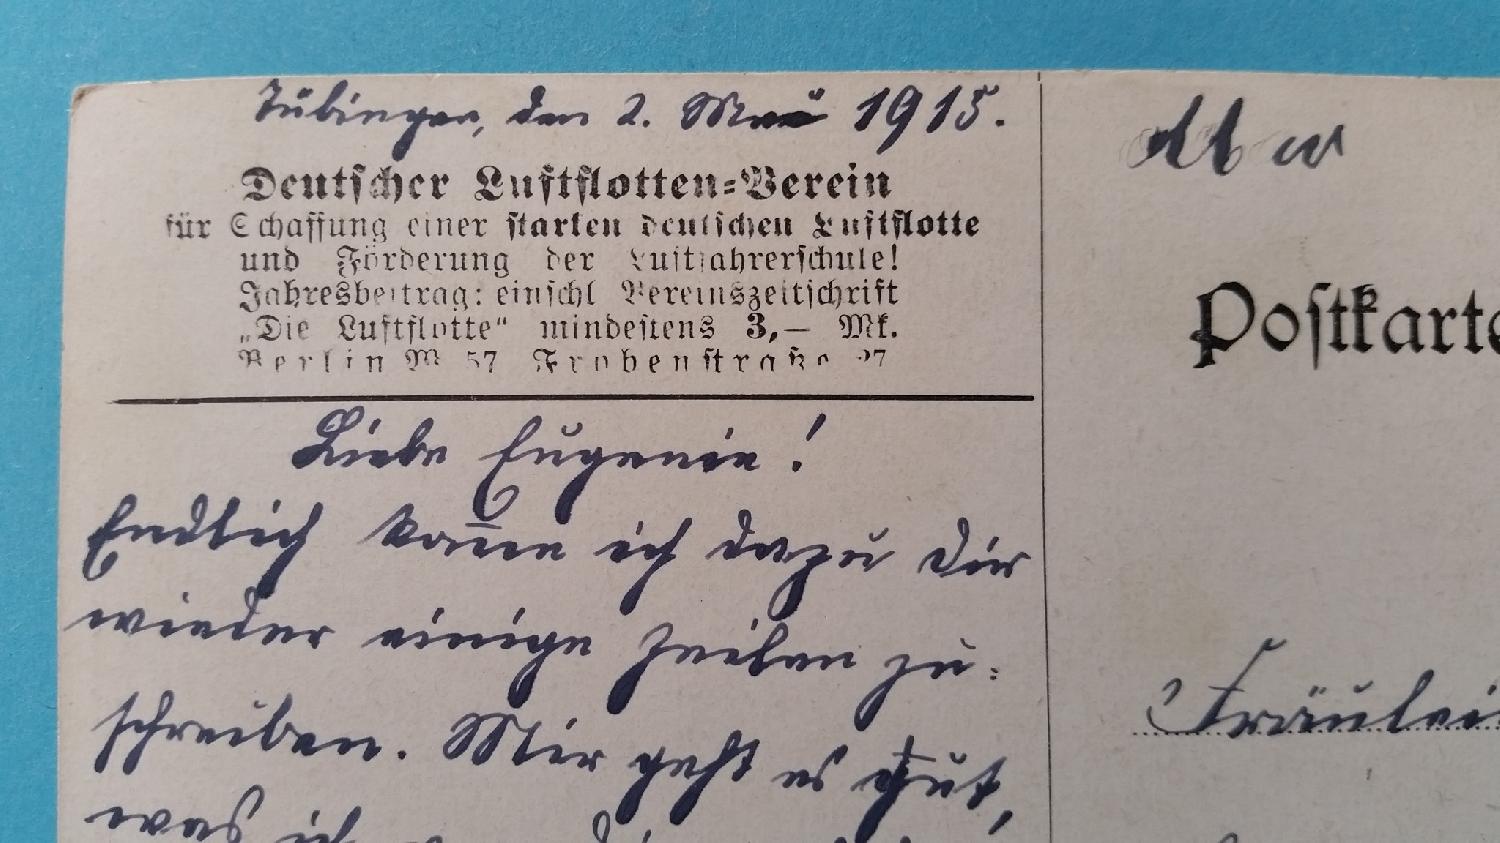 Tübingen, den 2. Mai 1915.
Deutscher Luftflotten=Verein
für Schaffung einer starken deutschen Luftflotte
und Förderung der Luftfahrerschule!
Jahresbeitrag: einschl Vereinszeitschrift
„Die Luftflotte“ mindestens 3,— Mk.
Berlin W 57 Frobenstraße 27
Liebe Eugenie!
Endlich kom̅e ich dazu Dir
wieder einige Zeilen zu-
schreiben. Mir geht es gut,
was ich
Postkarte
Fräulei